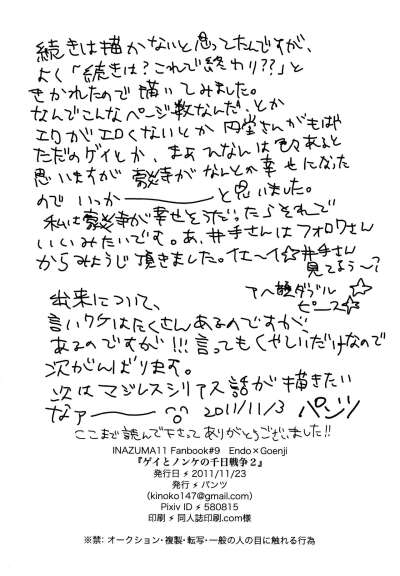 続きは描かないと思ってたんですが、
よく「続きは?これで終わり??」と
きかれたので描いてみました。
なんでこんなページ数なんだ、とか
エロがエロくないとか 円堂さんがもはや
ただのゲイとか、まぁ んなんは色々あると
思いますが豪炎寺がなんとか幸せになった
のでいっかーーーと思いました。
私は豪炎寺が幸せそうだったらそれで
いいみたいです。あ、井手さんはフォロワさん
からみょうじ頂きました。イエーイ☆井手さん
見てるぅ〜?
アヘ顔ダブル☆
ピース☆
出来について、
言いワケはたくさんあるのですが、
あるのですが!!!言ってもくやしいだけなので
次がんばります。
次はマジレスシリアス話が描きたい
なァー 2011/11/3 パンツ
ここまで読んで下さってありがとうございました!!
INAZUMA11 Fanbook#9 Endo×Goenji
『ゲイとノンケの千日戦争2』
発行日⚡2011/11/23
発行⚡パンツ
(kinoko147@gmail.com)
Pixiv ID⚡580815
印刷⚡同人誌印刷.com様
※禁: オークション・複製・転写・一般の人の目に触れる行為